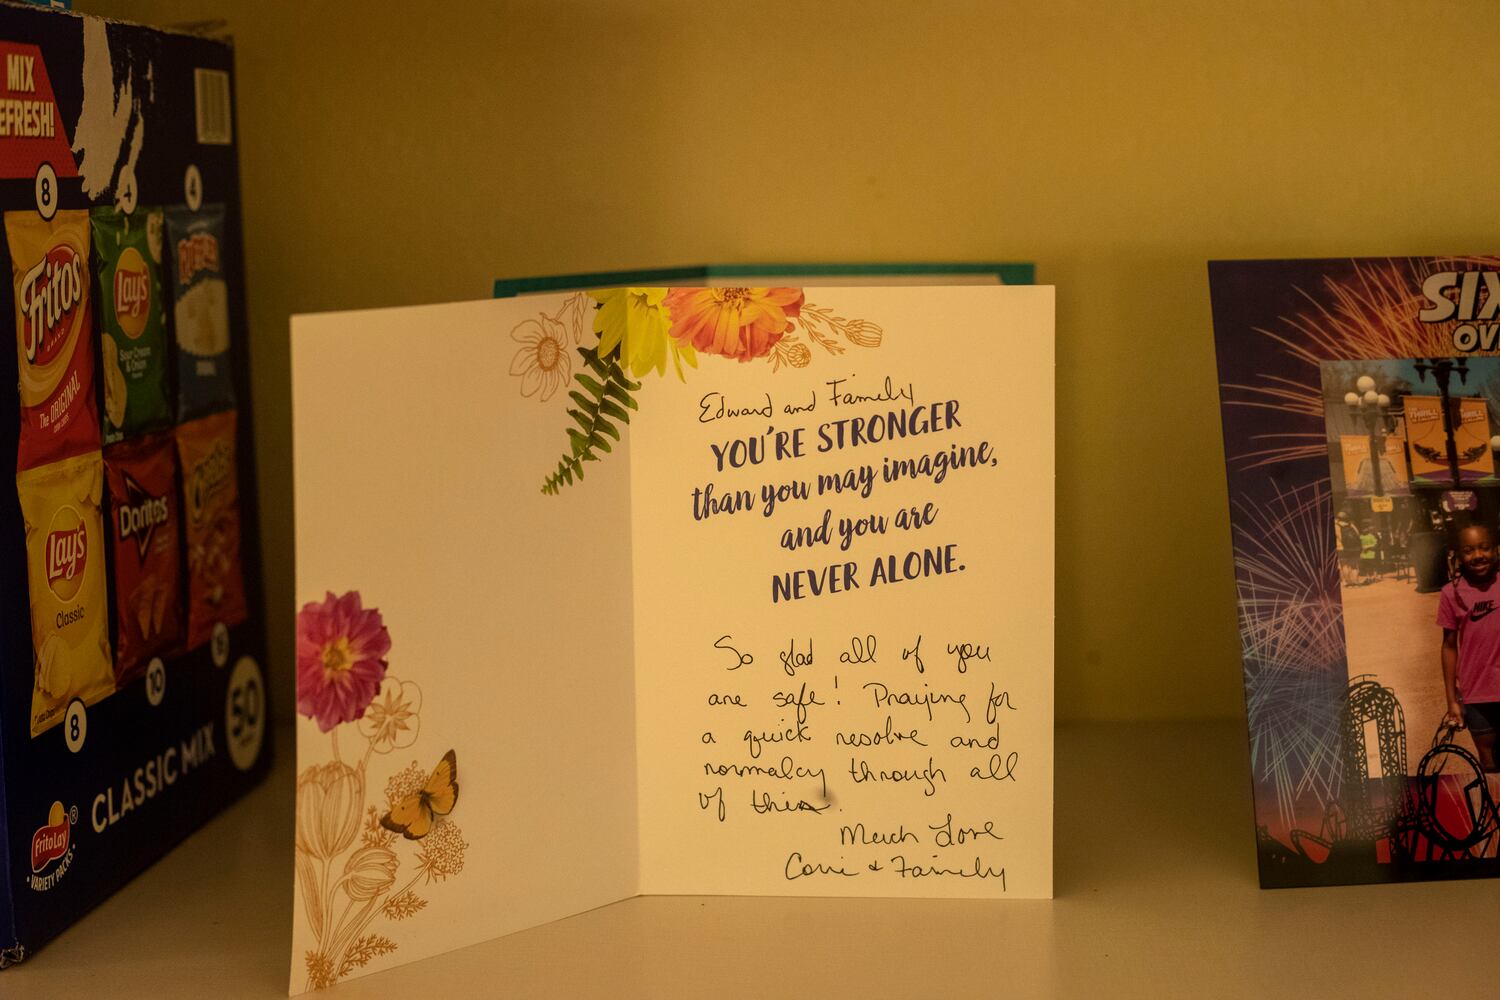 MIX
EFRESH!
8
4
4
Fritos
BRAND
The ORIGINAL
CORN CHIPS
Lay's
Sour Cream
& Onion
Lay's
Classic
Doritos
8
10
50
CLASSIC MIX
FritoLay
VARIETY PACKS
Edward and Family
YOU'RE STRONGER
than you may imagine,
and you are
NEVER ALONE.
So glad all of you
are safe! Praying for
a quick resolve and
normalcy through all
of this.
Much Love
Corrie & Family
SIX
OV
THRILL
NIKE